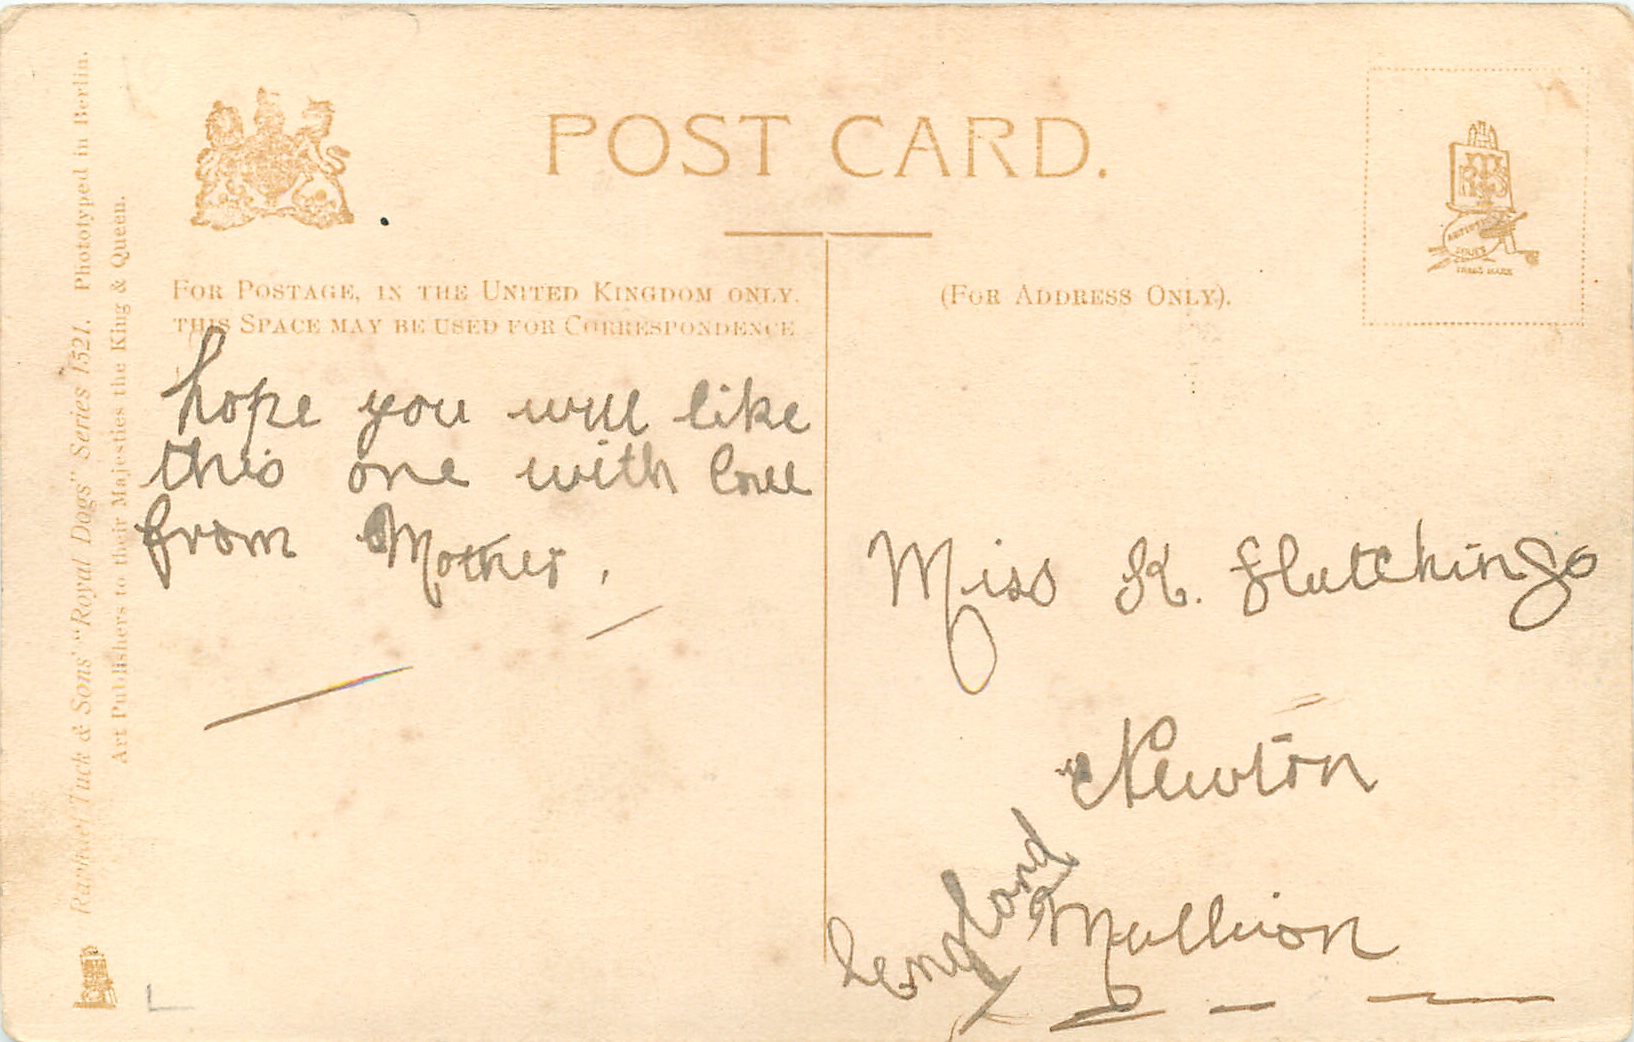 POST CARD.
FOR POSTAGE, IN THE UNITED KINGDOM ONLY,
THIS SPACE MAY BE USED FOR CORRESPONDENCE
(FOR ADDRESS ONLY).
hope you will like
this one with love
from Mother.
Miss K. Hutchings
Newton
Mullion
England
Raphael Tuck & Sons' "Royal Dogs" Series 1521. Phototyped in Berlin.
Art Publishers to their Majesties the King & Queen.
TRADE MARK